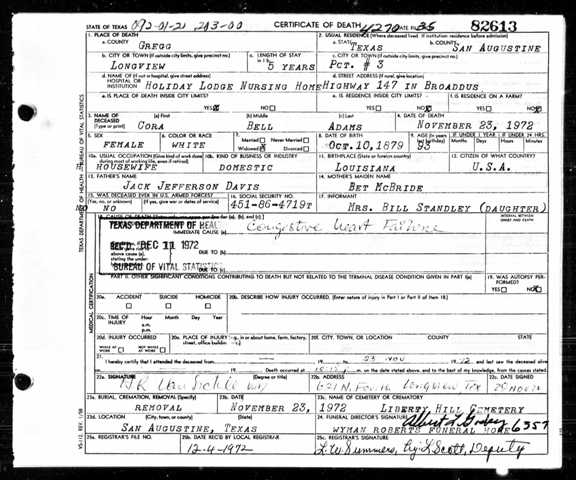 STATE OF TEXAS 092-01-21, 213-00 CERTIFICATE OF DEATH 4270 35 82613
1. PLACE OF DEATH
a. COUNTY
GREGG
2. USUAL RESIDENCE (Where deceased lived. If institution: residence before admission)
a. STATE
TEXAS
b. COUNTY
SAN AUGUSTINE
b. CITY OR TOWN (If outside city limits, give precinct no.)
LONGVIEW
c. LENGTH OF STAY
5 YEARS
c. CITY OR TOWN (If outside city limits, give precinct no.)
PCT. # 3
d. NAME OF (If not in hospital, give street address)
HOSPITAL OR INSTITUTION
HOLIDAY LODGE NURSING HOME
d. STREET ADDRESS (If rural, give location)
HIGHWAY 147 IN BROADDUS
e. IS PLACE OF DEATH INSIDE CITY LIMITS?
YES NO
e. IS RESIDENCE INSIDE CITY LIMITS?
YES NO
f. IS RESIDENCE ON A FARM?
YES NO
3. NAME OF DECEASED (Type or print)
(a) First
CORA
(b) Middle
BELL
(c) Last
ADAMS
4. DATE OF DEATH
NOVEMBER 23, 1972
5. SEX
FEMALE
6. COLOR OR RACE
WHITE
7. Married Never Married
Widowed Divorced
8. DATE OF BIRTH
OCT. 10, 1879
9. AGE
93
IF UNDER 1 YEAR
Months Days
IF UNDER 24 HRS.
Hours Min.
10a. USUAL OCCUPATION (Give kind of work done during most of working life, even if retired)
HOUSEWIFE
10b. KIND OF BUSINESS OR INDUSTRY
DOMESTIC
11. BIRTHPLACE (State or foreign country)
LOUISIANA
12. CITIZEN OF WHAT COUNTRY?
U.S.A.
13. FATHER'S NAME
JACK JEFFERSON DAVIS
14. MOTHER'S MAIDEN NAME
BET MCBRIDE
15. WAS DECEASED EVER IN U.S. ARMED FORCES?
(Yes, no, or unknown) (If yes, give war or dates of service)
NO
16. SOCIAL SECURITY NO.
451-86-4719T
17. INFORMANT
MRS. BILL STANDLEY (DAUGHTER)
18. CAUSE OF DEATH
INTERVAL BETWEEN ONSET AND DEATH
IMMEDIATE CAUSE (a)
Congestive Heart Failure
TEXAS DEPARTMENT OF HEAL
REC'D. DEC 11 1972
BUREAU OF VITAL STATISTICS
DUE TO (b)
DUE TO (c)
PART II. OTHER SIGNIFICANT CONDITIONS CONTRIBUTING TO DEATH BUT NOT RELATED TO THE TERMINAL DISEASE CONDITION GIVEN IN PART I(a)
19. WAS AUTOPSY PERFORMED?
YES NO
20a. ACCIDENT SUICIDE HOMICIDE
20b. DESCRIBE HOW INJURY OCCURRED. (Enter nature of injury in Part I or Part II of item 18.)
20c. TIME OF INJURY
Hour Month Day Year
a.m.
p.m.
20d. INJURY OCCURRED
WHILE AT WORK NOT WHILE AT WORK
20e. PLACE OF INJURY (e.g., in or about home, farm, factory, street, office building, etc.)
20f. CITY, TOWN, OR LOCATION COUNTY STATE
21. I hereby certify that I attended the deceased from 23 Nov 1972 and last saw the deceased alive
Death occurred at m. on the date stated above, and to the best of my knowledge, from the causes stated.
22a. SIGNATURE (Degree or title)
22b. ADDRESS
Longview Tex
22c. DATE SIGNED
23a. BURIAL, CREMATION, REMOVAL (Specify)
REMOVAL
23b. DATE
NOVEMBER 23, 1972
23c. NAME OF CEMETERY OR CREMATORY
LIBERTY HILL CEMETERY
23d. LOCATION (City, town, or county) (State)
SAN AUGUSTINE, TEXAS
24. FUNERAL DIRECTOR'S SIGNATURE
6357
WYMAN ROBERTS FUNERAL HOME
25a. REGISTRAR'S FILE NO.
25b. DATE REC'D BY LOCAL REGISTRAR
12-4-1972
25c. REGISTRAR'S SIGNATURE
L.W. Summers, by L Scott, Deputy
TEXAS DEPARTMENT OF HEALTH BUREAU OF VITAL STATISTICS
MEDICAL CERTIFICATION
VS-112, REV. 1/58